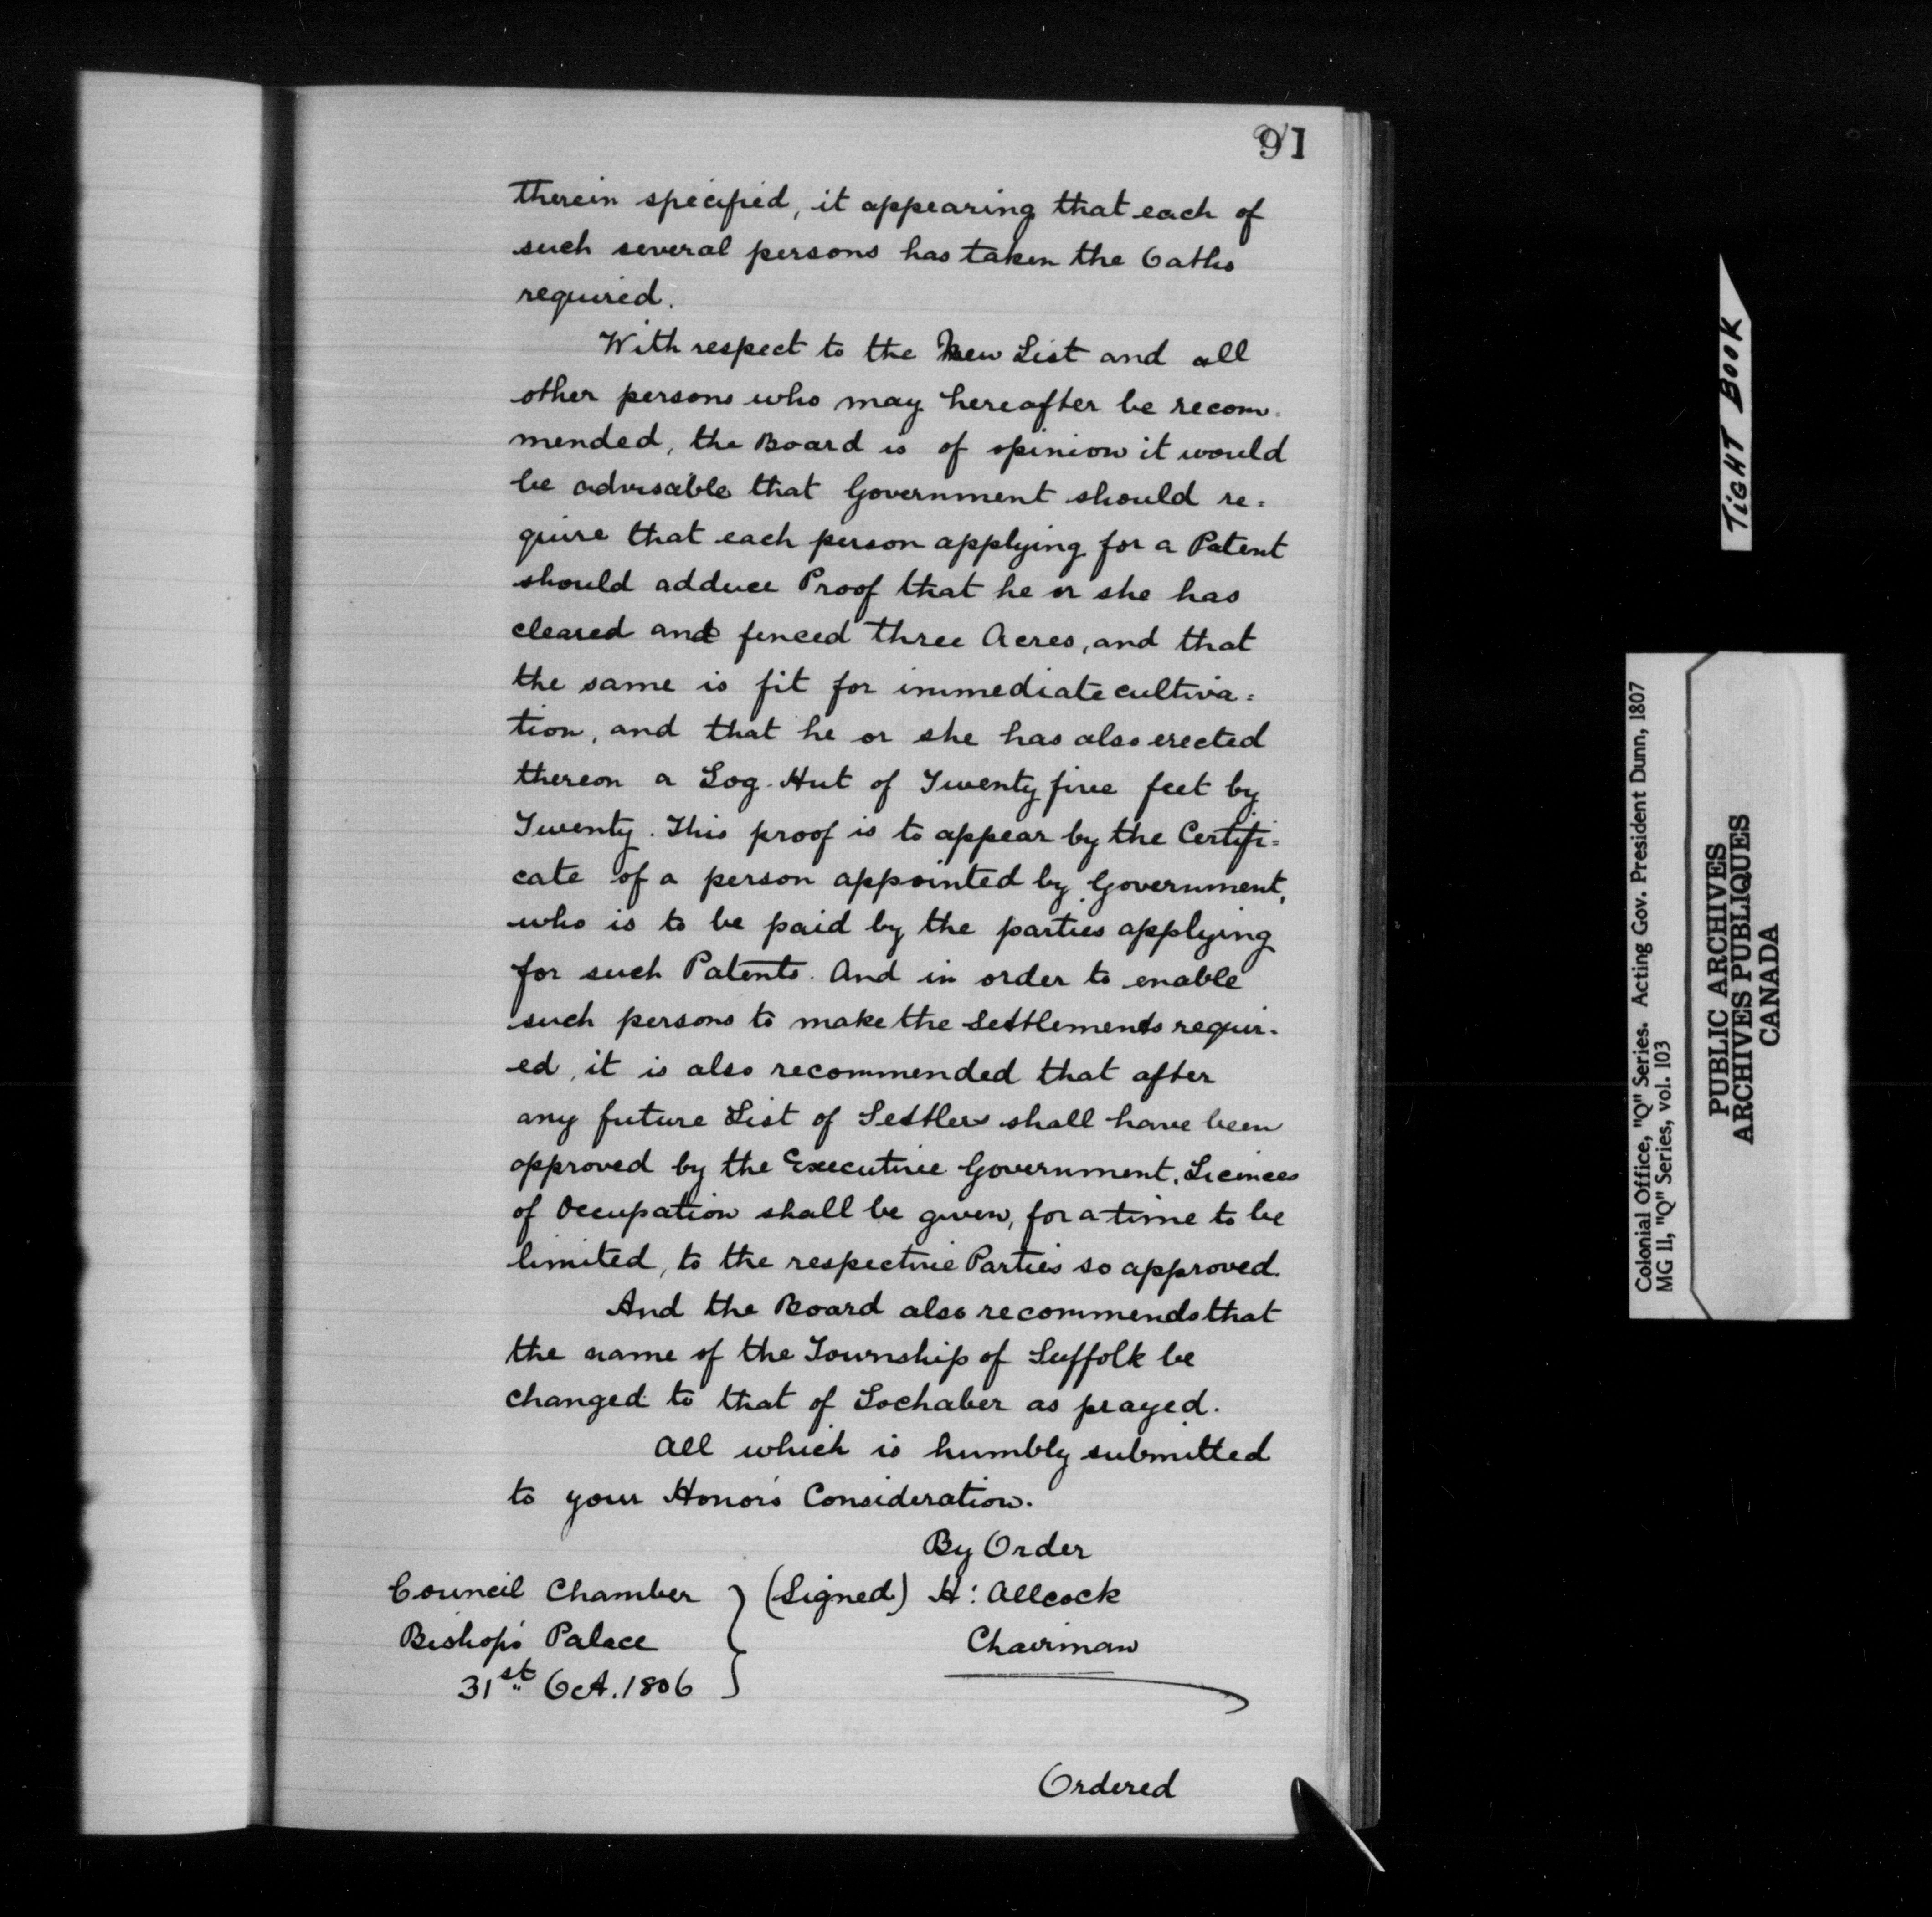 91
therein specified, it appearing that each of
such several persons has taken the Oaths
required.
With respect to the New List and all
other persons who may hereafter be recom-
mended, the Board is of opinion it would
be advisable that Government should re=
quire that each person applying for a Patent
should adduce Proof that he or she has
cleared and fenced three Acres, and that
the same is fit for immediate cultiva=
tion, and that he or she has also erected
thereon a Log-Hut of Twenty five feet by
Twenty. This proof is to appear by the Certifi=
cate of a person appointed by Government,
who is to be paid by the parties applying
for such Patents. And in order to enable
such persons to make the Settlements requir-
ed, it is also recommended that after
any future List of Settlers shall have been
approved by the Executive Government, Licences
of Occupation shall be given, for a time to be
limited, to the respective Parties so approved.
And the Board also recommends that
the name of the Township of Suffolk be
changed to that of Lochaber as prayed.
All which is humbly submitted
to your Honor's Consideration.
By Order
Council Chamber (Signed) H: Allcock
Bishop's Palace Chairman
31st Oct. 1806
Ordered
TIGHT BOOK
Colonial Office, "Q" Series. Acting Gov. President Dunn, 1807
MG 11, "Q" Series, vol. 103
PUBLIC ARCHIVES
ARCHIVES PUBLIQUES
CANADA